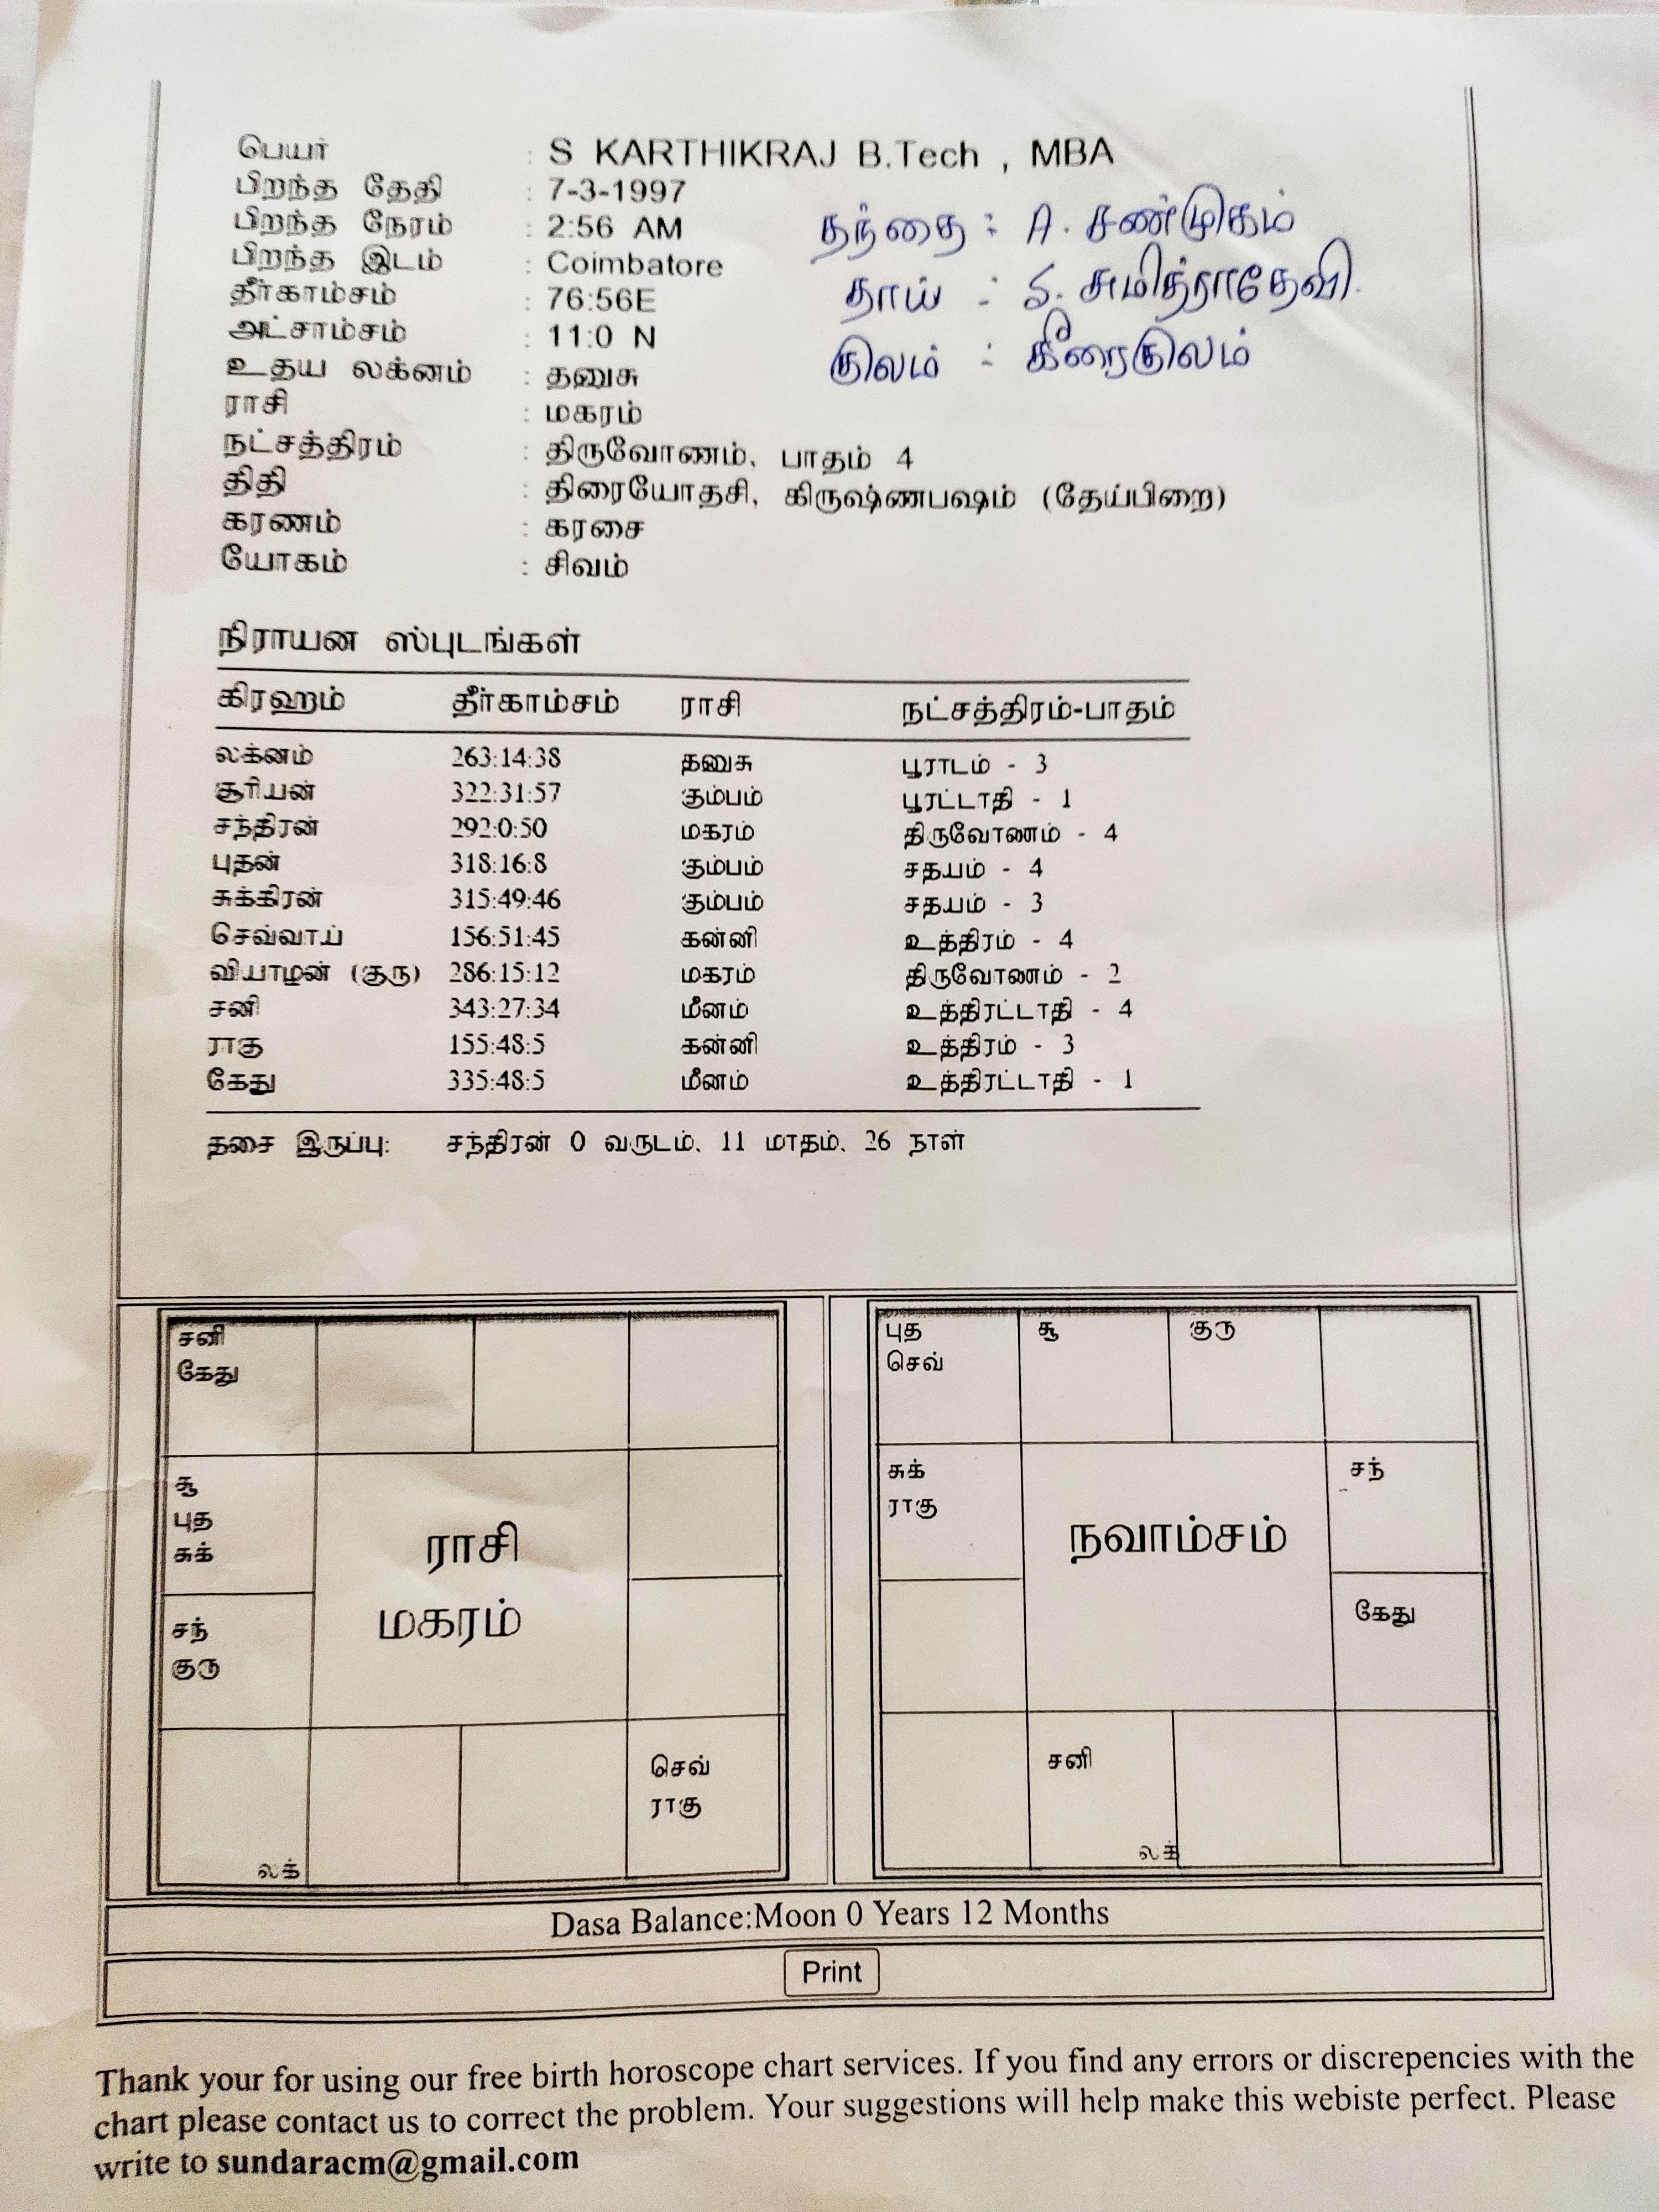 பெயர் : S KARTHIKRAJ B.Tech , MBA
பிறந்த தேதி : 7-3-1997
பிறந்த நேரம் : 2:56 AM
தந்தை : A. சண்முகம்
பிறந்த இடம் : Coimbatore
தீர்காம்சம் : 76:56E
தாய் : S. சுமித்ராதேவி.
அட்சாம்சம் : 11:0 N
குலம் : கீரைகுலம்
உதய லக்னம் : தனுசு
ராசி : மகரம்
நட்சத்திரம் : திருவோணம், பாதம் 4
திதி : திரையோதசி, கிருஷ்ணபஷம் (தேய்பிறை)
கரணம் : கரசை
யோகம் : சிவம்
நிராயன ஸ்புடங்கள்
கிரஹம் தீர்காம்சம் ராசி நட்சத்திரம்-பாதம்
லக்னம் 263:14:38 தனுசு பூராடம் - 3
சூரியன் 322:31:57 கும்பம் பூரட்டாதி - 1
சந்திரன் 292:0:50 மகரம் திருவோணம் - 4
புதன் 318:16:8 கும்பம் சதயம் - 4
சுக்கிரன் 315:49:46 கும்பம் சதயம் - 3
செவ்வாய் 156:51:45 கன்னி உத்திரம் - 4
வியாழன் (குரு) 286:15:12 மகரம் திருவோணம் - 2
சனி 343:27:34 மீனம் உத்திரட்டாதி - 4
ராகு 155:48:5 கன்னி உத்திரம் - 3
கேது 335:48:5 மீனம் உத்திரட்டாதி - 1
தசை இருப்பு: சந்திரன் 0 வருடம், 11 மாதம், 26 நாள்
சனி
கேது
சூ
புத
சுக்
ராசி
மகரம்
சந்
குரு
செவ்
ராகு
லக்
புத சூ குரு
செவ்
சுக் சந்
ராகு
நவாம்சம்
கேது
சனி
லக்
Dasa Balance:Moon 0 Years 12 Months
Print
Thank your for using our free birth horoscope chart services. If you find any errors or discrepencies with the
chart please contact us to correct the problem. Your suggestions will help make this webiste perfect. Please
write to sundaracm@gmail.com